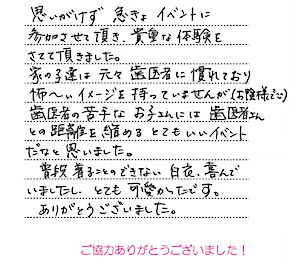 思いがけず 急きょ イベントに
参加させて頂き、貴重な体験を
さてて頂きました。
家の子達は元々歯医者に慣れており
怖〜いイメージを持っていませんが(お陰様で)
歯医者の苦手なお子さんには歯医者さん
との距離を縮めるとてもいいイベント
だなと思いました。
普段着ることのできない白衣、喜んで
いましたし、とても可愛かったです。
ありがとうございました。
ご協力ありがとうございました!